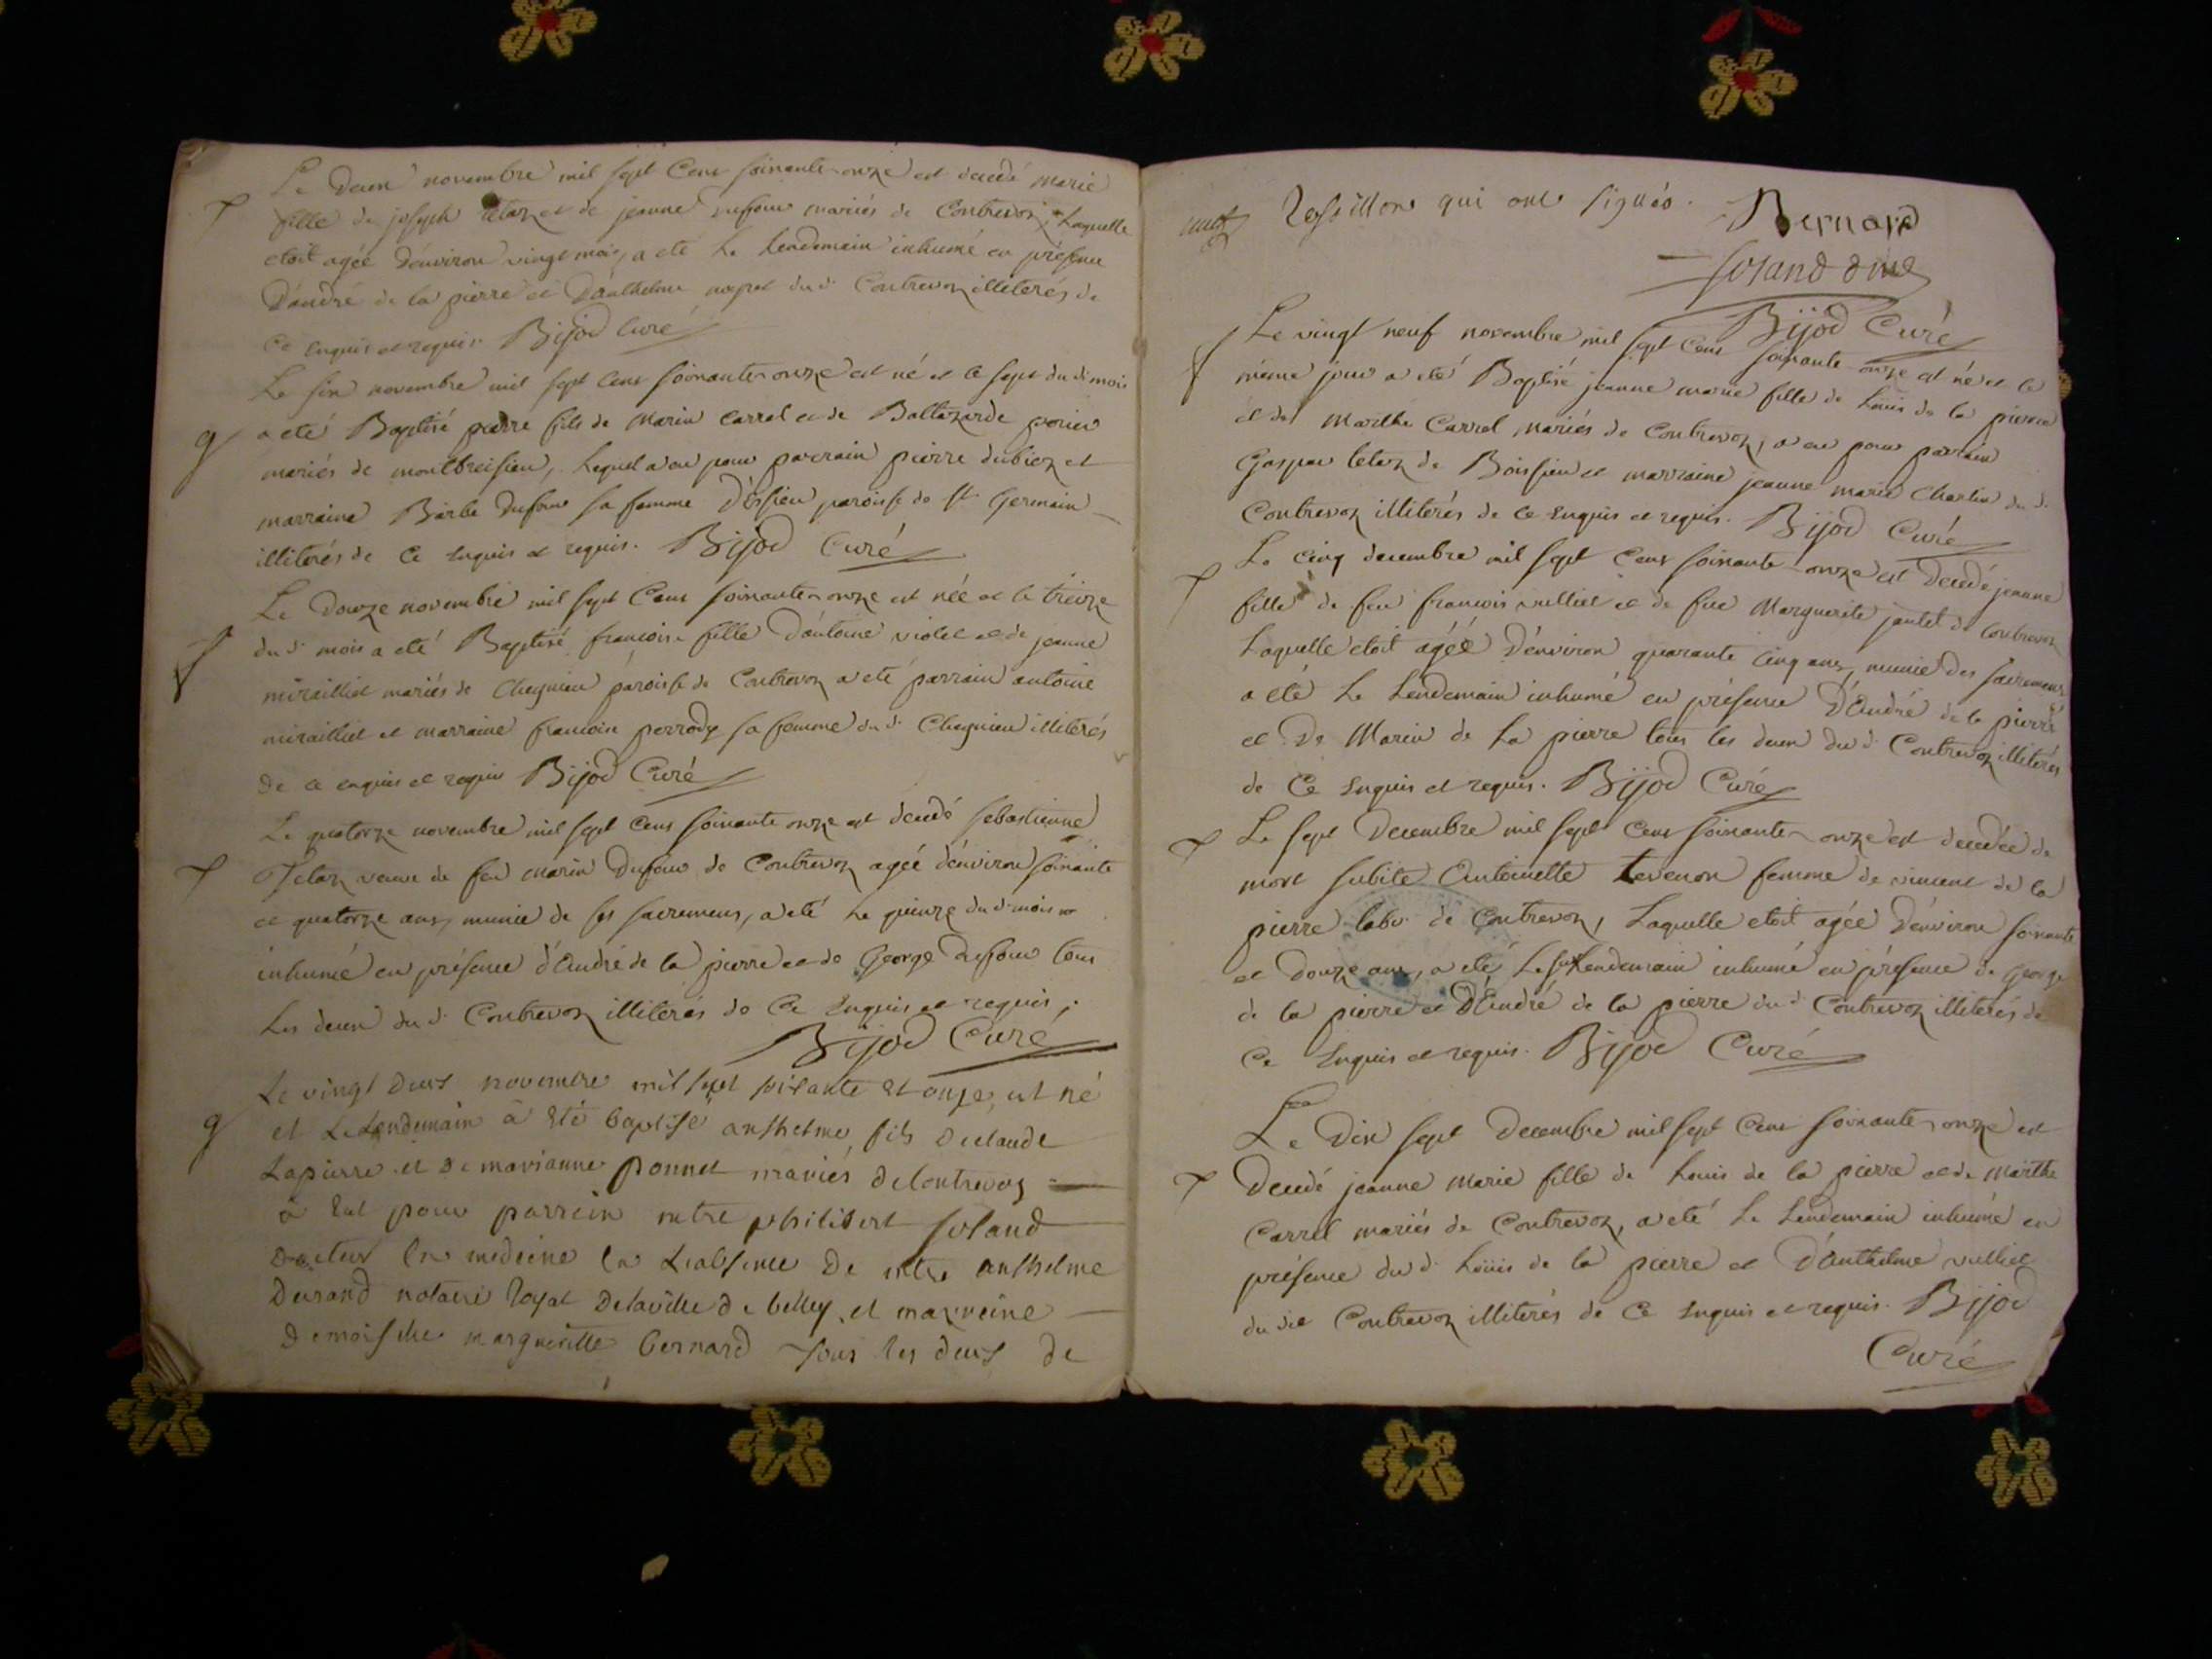 Le deux novembre mil sept cens soixante-onze est decedé marie
fille de joseph tetaz et de jeanne dufour mariés de Contrevoz, Laquelle
etoit agée d'environ vingt mois, a eté Le Lendemain inhumé en présence
D'andré de la pierre et D'anthelme du d. Contrevoz illiterés de
Ce Enquis et requis. Bijod Curé
Le six novembre mil sept cens soixante-onze est né et le sept du d. mois
g a eté Baptisé pierre fils de Marin Carrel et de Baltazarde
mariés de montbreisieu, Lequel a eu pour parrain pierre dubiez et
marraine Barbe Dufour sa femme D'essieu paroisse de St Germain
illiterés de Ce Enquis et requis. Bijod Curé
Le Douze novembre mil sept Cens soixante-onze est née et le treize
f du d. mois a eté Baptisé francoise fille D'antoine violet et de jeanne
mirailliet mariés de Chegnieu paroisse de Contrevoz a eté parrain antoine
mirailliet et marraine francoise perrody sa femme du d. Chegnieu illiterés
de ce enquis et requis Bijod Curé
Le quatorze novembre mil sept Cens soixante onze est decedé sebastienne
Tetaz veuve de feu marin Dufour de Contrevoz agée d'environ soixante
et quatorze ans, munie de ses sacremens, a eté Le quinze du d. mois
inhumé en présence d'André de la pierre et de George Dufour tous
Les deux du d. Contrevoz illiterés de Ce Enquis et requis,
Bijod Curé
Le vingt deux novembre mil sept soixante et onze, est né
g et Le Lendemain a été baptisé anthelme fils De claude
Lapierre et De marianne ponnet mariés de Contrevoz
a eut pour parrein mtre philibert soland
Docteur En medecine En L'absence De mtre anthelme
Durand notaire royal De la ville de belley, et marreine
Demoiselle margueritte bernard Tous les deux de
Rossillon qui ont signés. Bernard
Soland dme
Bijod Curé
Le vingt neuf novembre mil sept cens soixante-onze est né et le
f même jour a eté Baptisé jeanne marie fille de Louis de la pierre
et de Marthe Carrel mariés de Contrevoz, a eu pour parrain
Gaspar tetaz de Boissieu et marraine jeanne marie Charlin du d.
Contrevoz illiterés de Ce Enquis et requis. Bijod Curé
Le cinq decembre mil sept Cens soixante-onze est Decedé jeanne
fille de feu francois vulliet et de fue Marguerite jantet de Contrevoz
Laquelle etoit agée D'environ quarante Cinq ans, munie des sacremens
a eté Le Lendemain inhumé en présence D'André de la pierre
et De Marin de La pierre tous les deux du d. Contrevoz illiterés
de Ce Enquis et requis. Bijod Curé
Le sept Decembre mil sept Cens soixante-onze est decedée de
mort subite Antoinette tevenon femme de vincent de la
pierre labr. de Contrevoz, Laquelle etoit agée d'environ soixante
et douze ans, a eté Le Lendemain inhumé en présence de George
de la pierre et D'André de la pierre du d. Contrevoz illiterés de
Ce Enquis et requis. Bijod Curé
Le Dix sept Decembre mil sept Cens soixante-onze est
Decedé jeanne Marie fille de Louis de la pierre et de Marthe
Carrel mariés de Contrevoz, a eté Le Lendemain inhumé en
présence du d. Loüis de la pierre et D'Anthelme vulliet
du dit Contrevoz illiterés de Ce Enquis et requis. Bijod
Curé